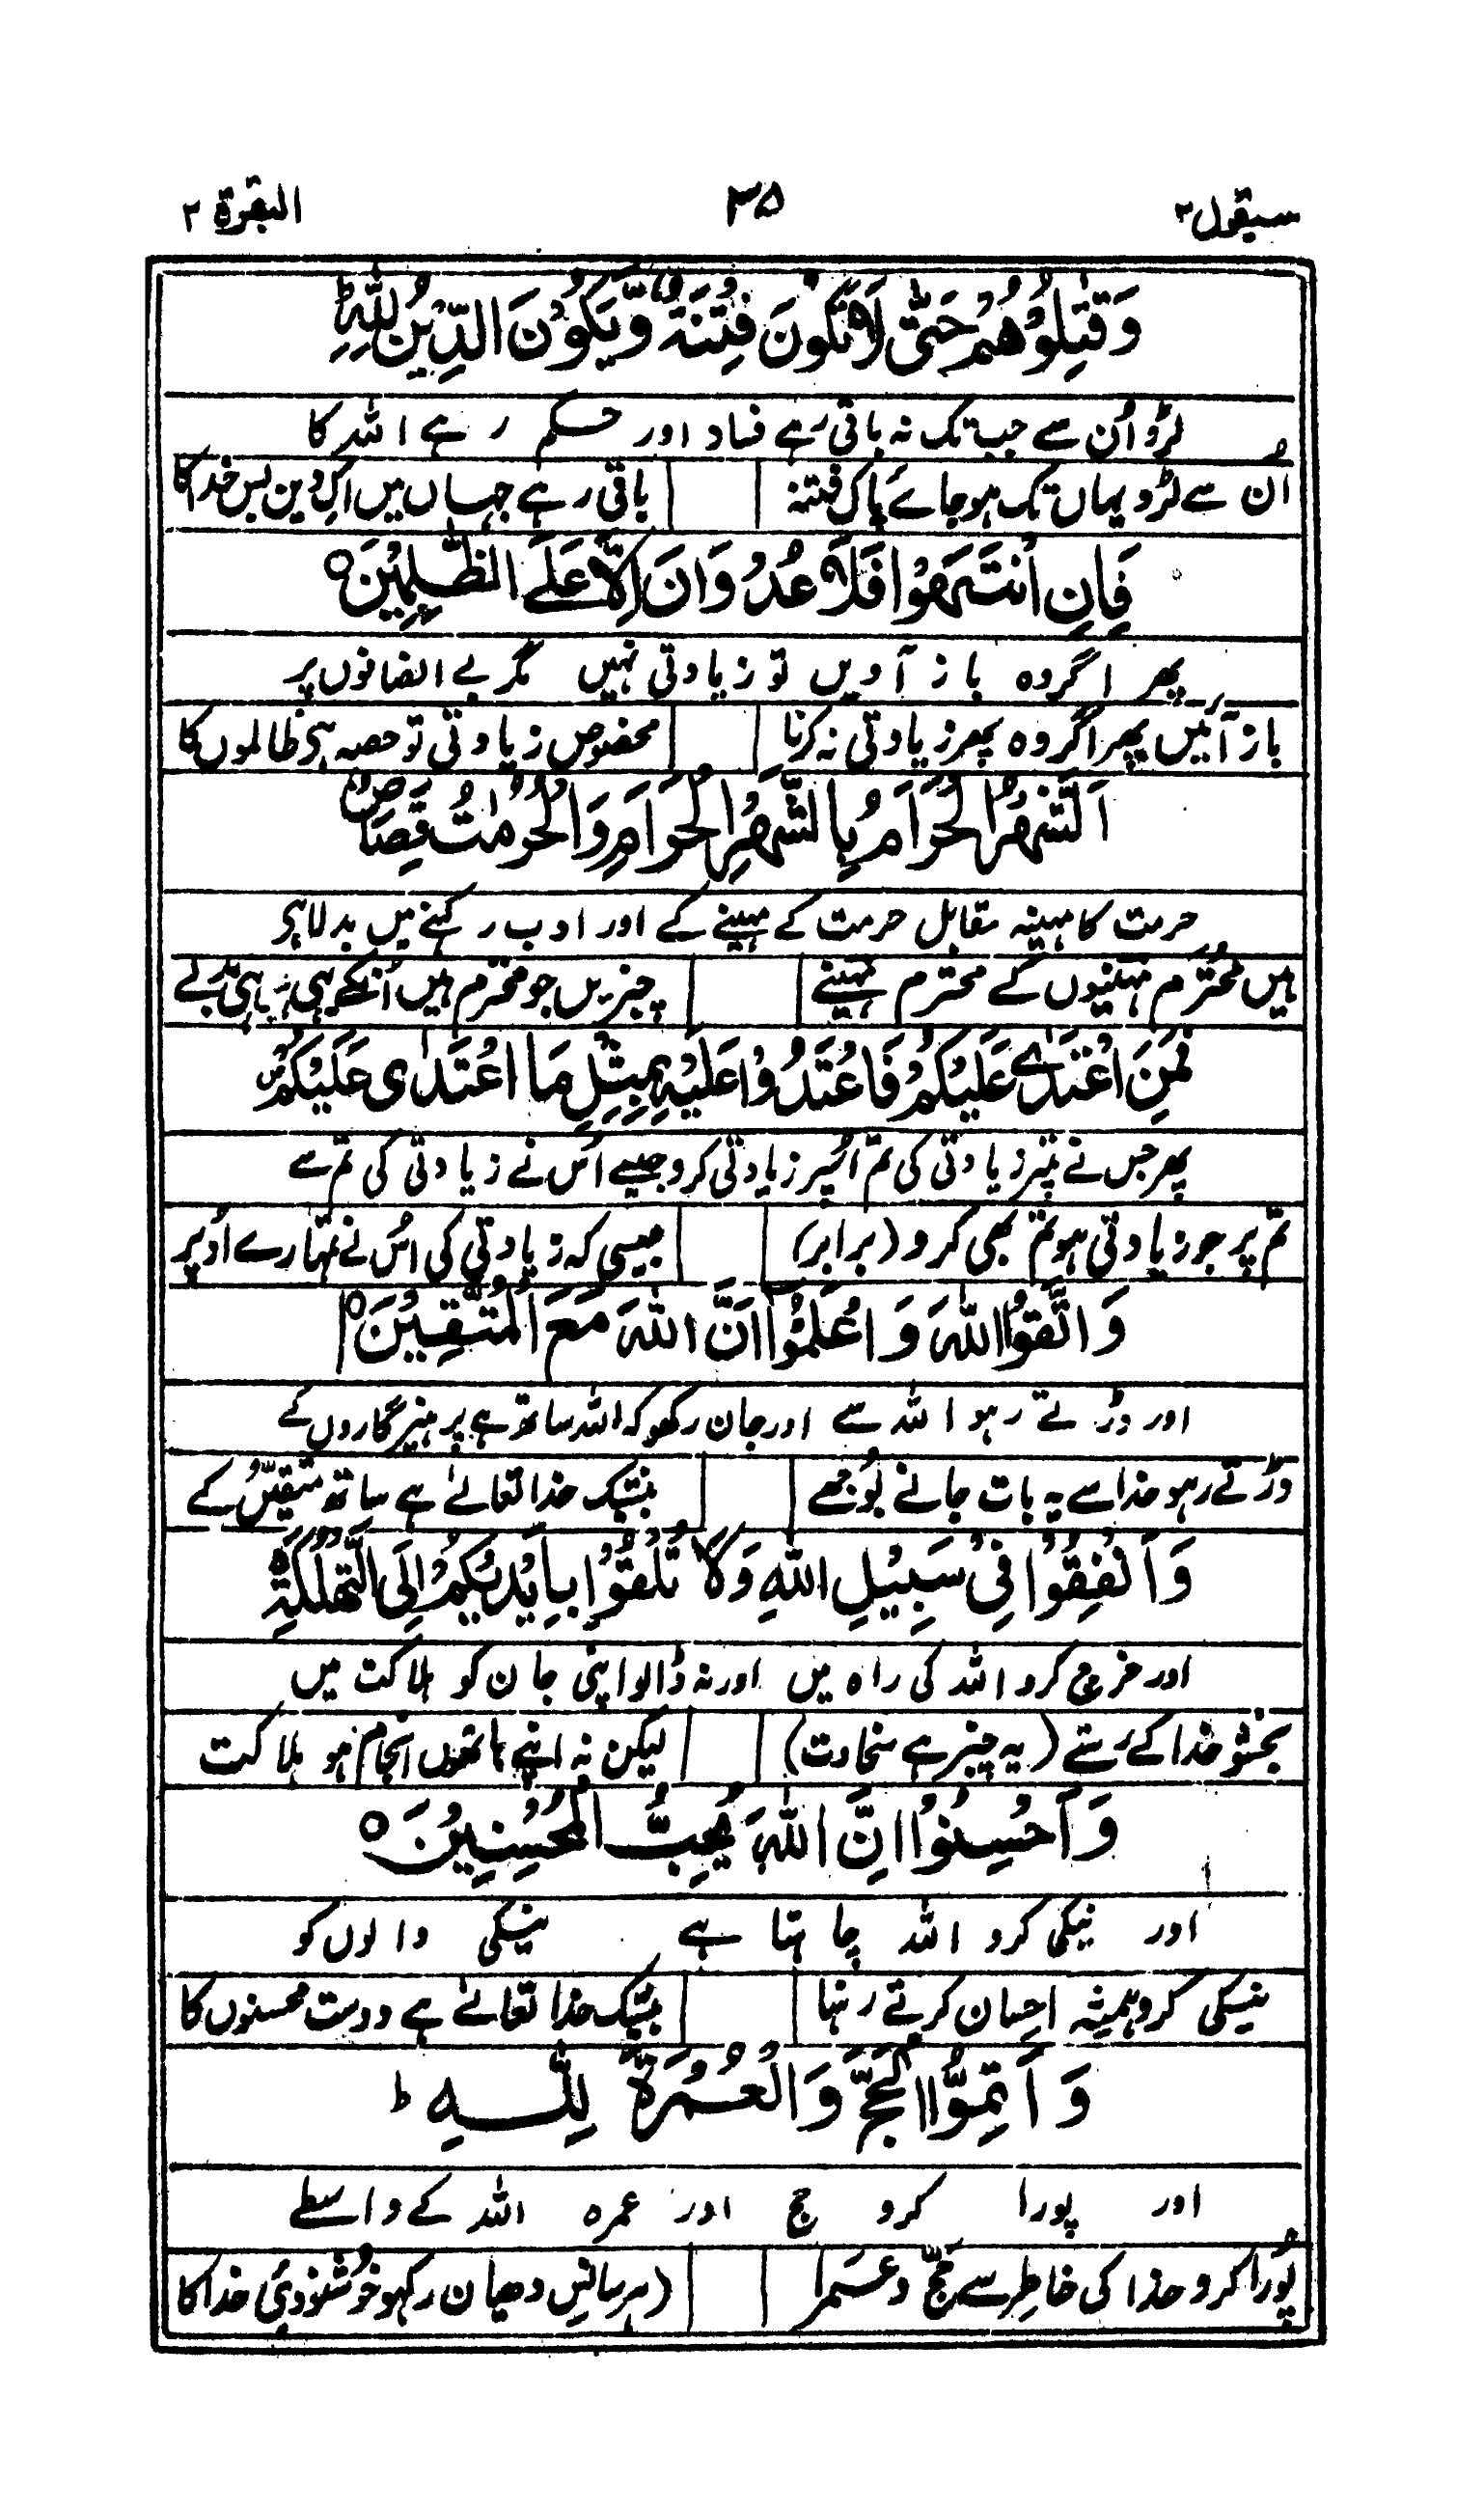 سیقول ۲ ۳۵ البقرۃ ۲
وَقٰتِلُوْهُمْ حَتّٰى لَا تَكُوْنَ فِتْنَةٌ وَّيَكُوْنَ الدِّيْنُ لِلّٰهِ ؕ
لڑو اُن سے جب تک نہ باقی رہے فساد اور حکم رہے اللہ کا
ان سے لڑو یہاں تک ہو جائے پاک فتنہ باقی رہے جہاں میں اک دین بس خدا کا
فَاِنِ انْتَهَوْا فَلَا عُدْوَانَ اِلَّا عَلَى الظّٰلِمِيْنَ ○
پھر اگر وہ باز آویں تو زیادتی نہیں مگر بے انصافوں پر
باز آئیں پھر اگر وہ پھر زیادتی نہ کرنا مخصوص زیادتی تو حصہ ہی ظالموں کا
اَلشَّهْرُ الْحَرَامُ بِالشَّهْرِ الْحَرَامِ وَالْحُرُمٰتُ قِصَاصٌ
حرمت کا مہینہ مقابل حرمت کے مہینے کے اور ادب رکہنے میں بدلا ہی
ہیں محترم مہینوں کے محترم مہینے چیزیں جو محترم ہیں اُنکے یہی
فَمَنِ اعْتَدٰى عَلَيْكُمْ فَاعْتَدُوْا عَلَيْهِ بِمِثْلِ مَا اعْتَدٰى عَلَيْكُمْ
پھر جس نے تمپر زیادتی کی تم اسپر زیادتی کرو جیسے اُس نے زیادتی کی تم سے
تم پر جو زیادتی ہو تم بھی کرو (برابر) جیسی کہ زیادتی کی اُس نے تمہارے اوپر
وَاتَّقُوا اللّٰهَ وَاعْلَمُوْٓا اَنَّ اللّٰهَ مَعَ الْمُتَّقِيْنَ ○
اور ڈرتے رہو اللہ سے اور جان رکھو کہ اللہ ساتھ ہے پرہیزگاروں کے
ڈرتے رہو خدا سے یہ بات جانے بُوجھے بیشک خدا تعالےٰ ہے ساتھ متقیّں کے
وَاَنْفِقُوْا فِيْ سَبِيْلِ اللّٰهِ وَلَا تُلْقُوْا بِاَيْدِيْكُمْ اِلَى التَّهْلُكَةِ
اور خرچ کرو اللہ کی راہ میں اور نہ ڈالو اپنی جان کو ہلاکت میں
بخشو خدا کے رستے (یہ چیز ہے سخاوت) لیکن نہ اپنے ہاتھوں انجام ہو ہلاکت
وَاَحْسِنُوْا اِنَّ اللّٰهَ يُحِبُّ الْمُحْسِنِيْنَ ○
اور نیکی کرو اللہ چاہتا ہے نیکی والوں کو
نیکی کرو ہمیشہ احسان کرتے رہنا بیشک خدا تعالےٰ ہے دوست محسنوں کا
وَاَتِمُّوا الْحَجَّ وَالْعُمْرَةَ لِلّٰهِ ؕ
اور پورا کرو حج اور عمرہ اللہ کے واسطے
پُورا کرو خدا کی خاطر سے حج و عمرا (ہر سانس دھیان رکہو خوشنودیٔ خدا کا